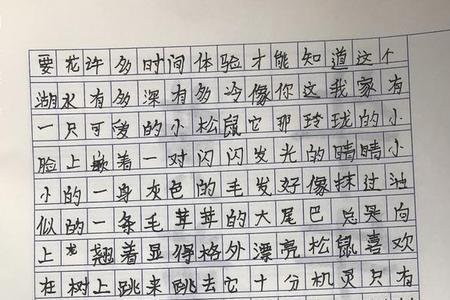 要花许多时间体验才能知道这个
湖水有多深有多冷像你这我家有
一只可爱的小松鼠它那玲珑的小
脸上嵌着一对闪闪发光的晴晴小
小的一身灰色的毛发好像抹过油
似的一条毛茸茸的大尾巴总是向
上翘着显得格外漂亮松鼠喜欢
在树上跳来跳去它十分机灵只有